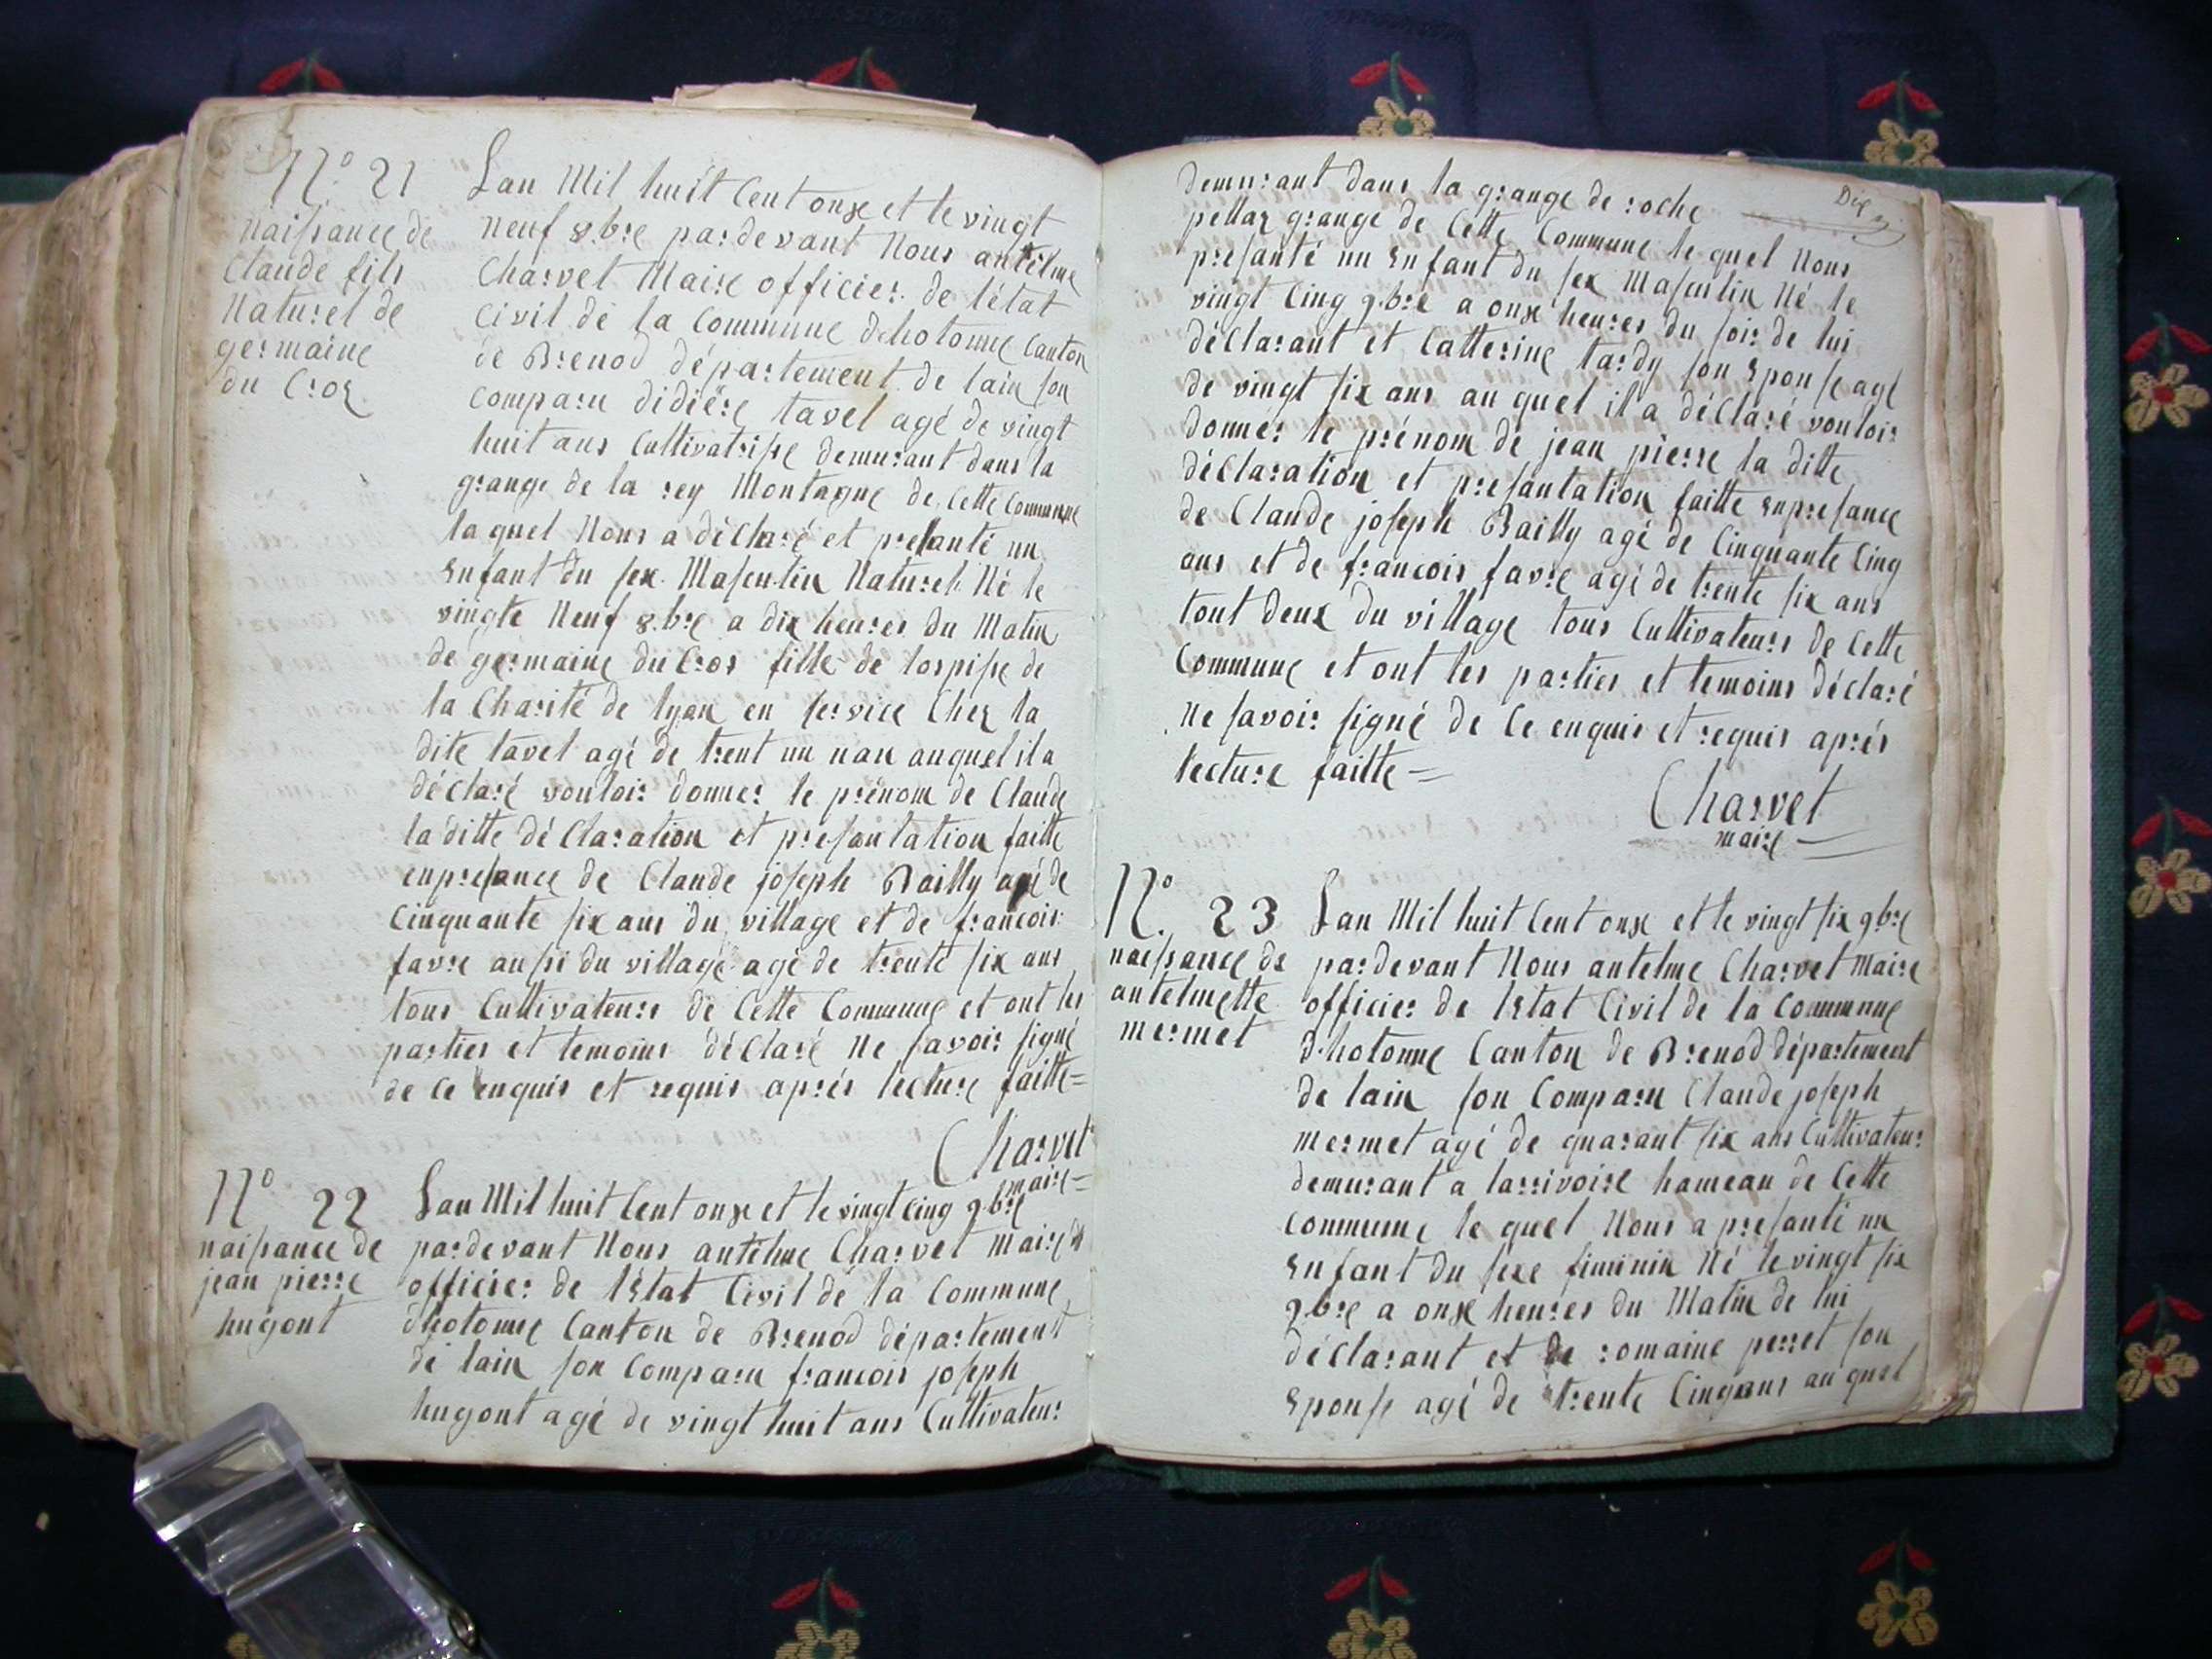 N.º 21
naissance de
Claude fils
Naturel de
germaine
du Croz
Lan Mil huit Cent onze et le vingt
neuf 8.bre pardevant Nous antelme
Charvet Maire officier de létat
Civil de la Commune dehotonne Canton
de Brenod département de lain son
comparu didière tavel agé de vingt
huit ans Cultivatrisse demurant dans la
grange de la rey Montagne de Cette Commune
laquel Nous a déClaré et presanté un
Enfant du sex Masculin Naturel Né le
vingte Neuf 8.bre a dix heures du Matin
de germaine du Cros fille de lospisse de
la Charité de lyon en service Chez la
dite tavel agé de trent un nan auquel il a
déclaré vouloir donner le prénom de Claude
la ditte déClaration et presantation faitte
enpresance de Claude joseph Bailly agé de
Cinquante six ans du village et de francois
favre aussi du village agé de trente six ans
tous Cultivateurs de Cette Commune et ont les
parties et temoins déClaré Ne savoir signé
de Ce enquis et requis aprés lecture faitte=
Charvet
maire=
N.º 22
naissance de
jean pierre
hugont
Lan Mil huit Cent onze et le vingt Cinq 9.bre
pardevant Nous antelme Charvet maire
officier de lEtat Civil de la Commune
dhotonne Canton de Brenod département
de lain son Comparu francois joseph
hugont agé de vingt huit ans Cultivateur
Dix
demurant dans la grange de roche
pellaz grange de Cette Commune lequel Nous
presanté un Enfant du sex Masculin Né le
vingt Cinq 9.bre a onze heures du soir de lui
déClarant et Catterine tardy son Epouse agé
de vingt six ans au quel il a déClaré vouloir
donner le prénom de jean pierre la ditte
déClaration et presantation faitte Enpresance
de Claude joseph Bailly agé de Cinquante Cinq
ans et de francois favre agé de trente six ans
tout deux du village tous Cultivateurs de Cette
Commune et ont les parties et temoins déclaré
Ne savoir signé de Ce enquis et requis aprés
lecture faitte =
Charvet
maire
N.º 23
naissance de
antelmette
mermet
Lan Mil huit Cent onze et le vingt six 9bre
pardevant Nous antelme Charvet Maire
officier de lEtat Civil de la Commune
d.hotonne Canton de Brenod département
de lain son Comparu Claude joseph
mermet agé de quarant six ans Cultivateur
demurant a larrivoire hameau de Cette
commune le quel Nous a presanté un
Enfant du sexe fiminin Né le vingt six
9.bre a onze heures du Matin de lui
déClarant et de romaine perret son
Epouse agé de trente Cinq ans au quel